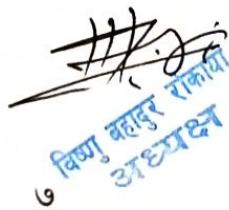 विष्णु बहादुर रोकाया
अध्यक्ष
७